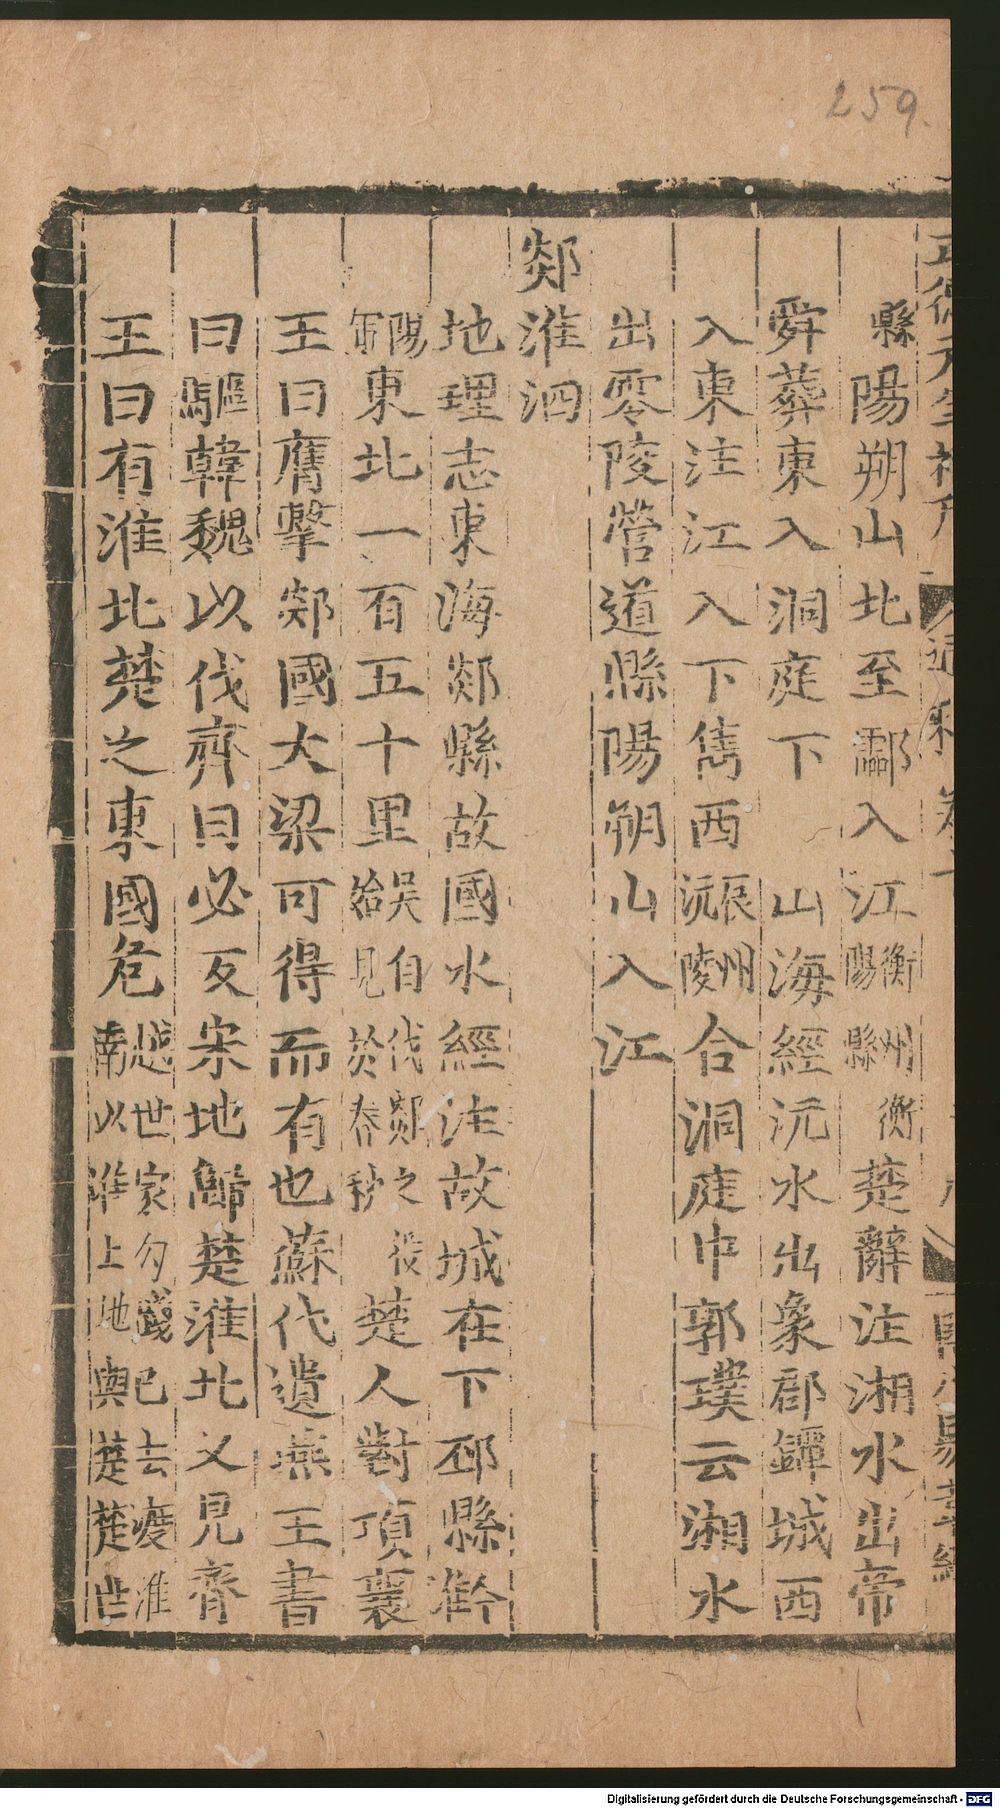 259.
縣陽朔山北至酃入江衡州衡陽縣楚辭注湘水出帝
舜葬東入洞庭下 山海經沅水出象郡鐔城西
入東注江入下雋西辰州沅陵合洞庭中郭璞云湘水
出零陵營道縣陽朔山入江
郯淮泗
地理志東海郯縣故國水經注故城在下邳縣今淮
陽軍東北一百五十里吳自伐郯之役始見於春秋楚人對頃襄
王曰膺擊郯國大梁可得而有也蘇代遺燕王書
曰驅韓魏以伐齊曰必反宋地歸楚淮北又見齊
王曰有淮北楚之東國危越世家勾踐已去渡淮南以淮上地與楚楚世
Digitalisierung gefördert durch die Deutsche Forschungsgemeinschaft - DFG